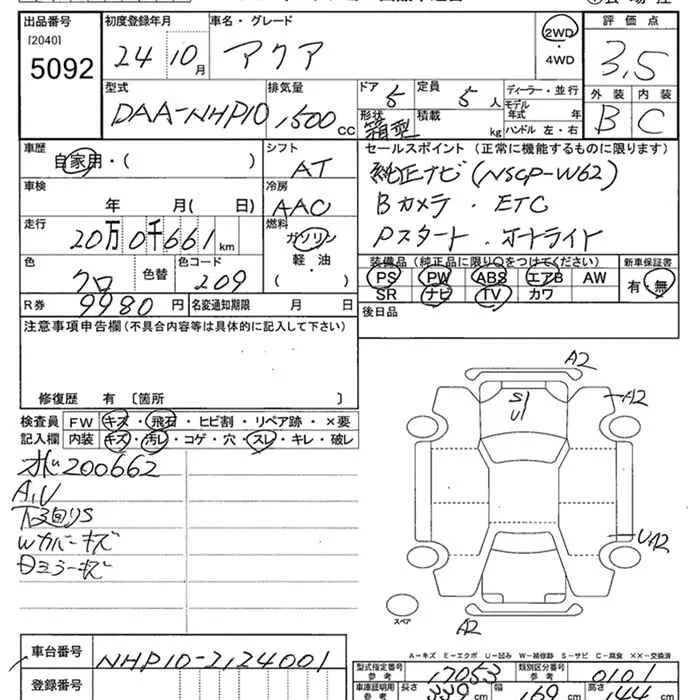 出品番号 初度登録年月 車名・グレード 評価点
[2040]
5092 24 10月 アクア 2WD・4WD 3.5
型式 排気量 ドア 定員 ディーラー・並行 外装 内装
DAA-NHP10 1500cc 5 5人 モデル年式 年 B C
形状 積載 箱型 kg ハンドル 左・右
車歴 シフト セールスポイント (正常に機能するものに限ります)
自家用・( ) AT 純正ナビ(NSCP-W62)
車検 冷房 Bカメラ・ETC
年 月( 日) AAC Pスタート・オートライト
走行 燃料
20万0千661km ガソリン・軽・油( )
装備品(純正品に限り○をつけてください) 新車保証書
色 色替 色コード PS PW ABS エアB AW 有・無
クロ 209 SR ナビ TV カワ
R券 9980円 名変通知期限 月 日 後日品
注意事項申告欄(不具合内容等は具体的に記入して下さい)
修復歴 有〔箇所 〕
A2
A2
S1
U1
検査員 FW キズ・飛石・ヒビ割・リペア跡・×要
記入欄 内装 キズ・汚レ・コゲ・穴・スレ・キレ・破レ
200662
A,U
下回りS
Wカバーキズ
日ミラーキズ
UA2
スペア
A2
A-キズ E-エクボ U-凹み W-補修跡 S-サビ C-腐食 XX-交換済
車台番号 NHP10-2124001
型式指定番号 参考 17053 類別区分番号 参考 0101
登録番号
車庫証明用 参考 長さ 399cm 幅 169cm 高さ 144cm